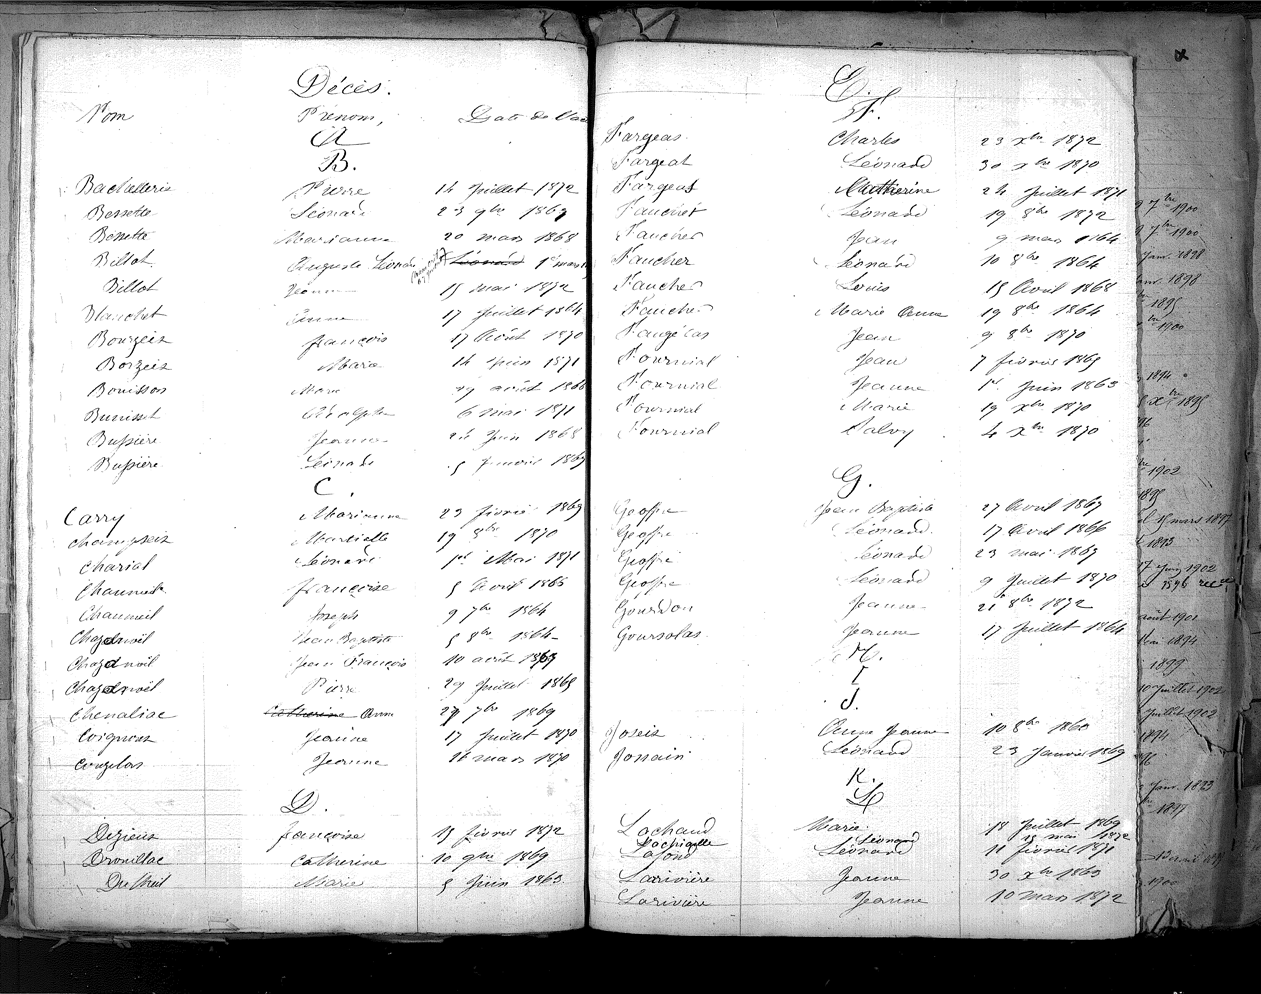 Décès.
Nom Prénom, Date de l'ac
A
B.
Bachellerie Pierre 14 Juillet 1872
Bessette Léonard 23 9bre 1869
Bessette Marianne 20 mars 1868
Billot Auguste Léonard Léonard 1er mars
Billot Jeanne 15 mai 1872
Blanchet Anne 17 Juillet 1864
Bourzeix françois 17 Août 1870
Borzeix Marie 14 Juin 1871
Bouisson Marie 29 août 1866
Bunisset Adolphe 6 mai 1871
Bussière Jeanne 24 Juin 1868
Bussière Léonard 5 Janvier 1869
C.
Carry Marianne 23 février 1869
Champseix Martielle 19 8bre 1870
Chariat Léonard 1er Mai 1871
Chaumeil françoise 5 Avril 1865
Chaumeil Joseph 9 7bre 1864
Chazalnoël Jean Baptiste 5 8bre 1864
Chazalnoël Jean François 10 août 1869
Chazalnoël Pierre 29 Juillet 1865
Chenaliac Catherine Anne 27 7bre 1869
Coignoux Jeanne 17 Juillet 1870
Couzelas Jeanne 16 mars 1870
D.
Dezieux françoise 15 février 1872
Drouillac Catherine 10 9bre 1869
Du Meil Marie 5 Juin 1863.
E.
F.
Fargeas Charles 23 Xbre 1872
Fargeat Léonard 30 Xbre 1870
Fargeas Catherine 24 Juillet 1871
Fauchet Léonard 19 8bre 1872
Faucher Jean 9 mars 1864
Faucher Léonard 10 8bre 1864
Faucher Louis 15 Avril 1868
Faucher Marie Anne 19 8bre 1864
Faugéras Jean 9 8bre 1870
Fournial Jean 7 février 1865
Fournial Jeanne 1er Juin 1863
Fournial Marie 19 Xbre 1870
Fournial Salvy 4 Xbre 1870
G.
Geoffre Jean Baptiste 27 Avril 1867
Geoffre Léonard 17 Avril 1866
Geoffre Léonard 23 mai 1867
Geoffre Léonard 9 Juillet 1870
Gourdon Jeanne 21 8bre 1872
Goursolas Jeanne 17 Juillet 1864
H.
I
J.
Joseix Anne Jeanne 10 8bre 1860
Jossain Léonard 23 Janvier 1869
K.
L
Lachaud Marie 18 Juillet 1869
Lachipelle Léonard 18 mai 1872
Lafond Léonard 11 février 1871
Larivière Jeanne 30 Xbre 1863
Larivière Jeanne 10 mars 1872
7bre 1900
7bre 1900
Janv. 1898
1898
1895
1900
1894
Xbre 1895
1902
1895
15 mars 1897
1893
17 Juin 1902
1896
août 1901
1894
1899
10 Juillet 1902
Juillet 1902
1894
Janv. 1893
1899
1900